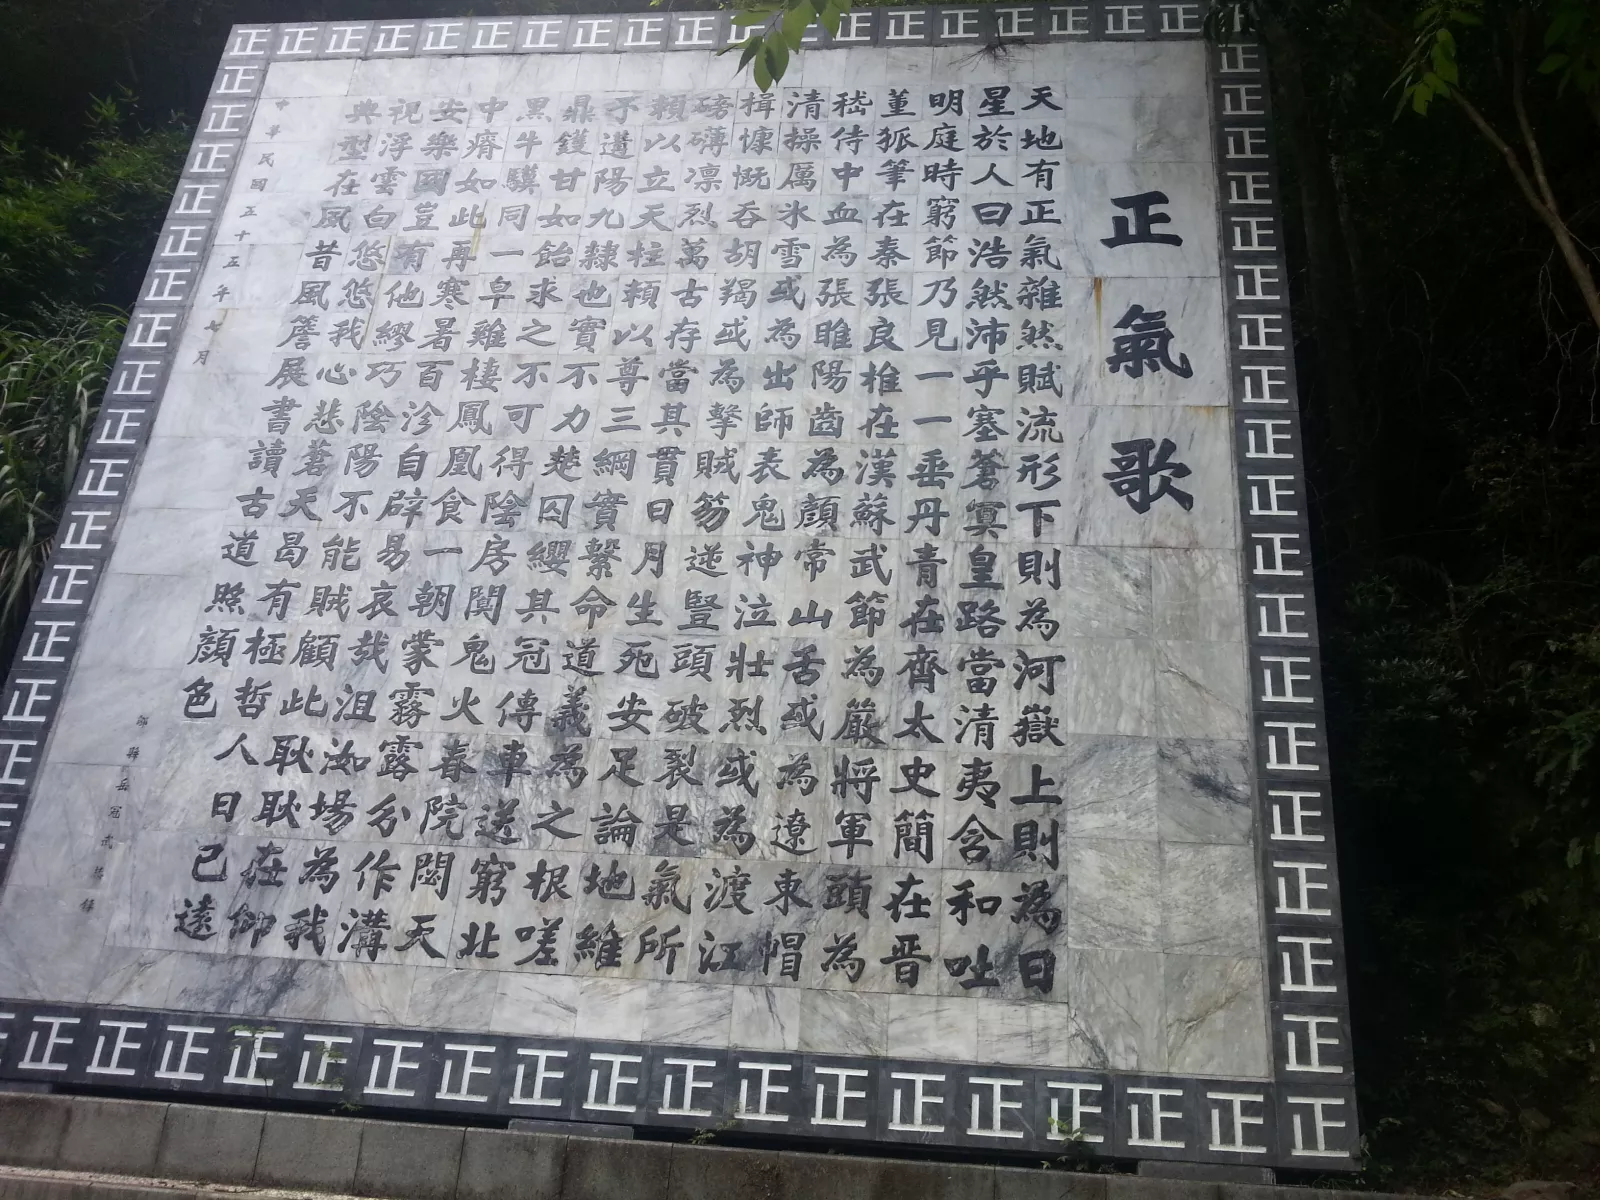 正氣歌
天地有正氣雜然賦流形下則為河嶽上則為日
星於人曰浩然沛乎塞蒼冥皇路當清夷含和吐
明庭時窮節乃見一一垂丹青在齊太史簡在晉
董狐筆在秦張良椎在漢蘇武節為嚴將軍頭為
嵇侍中血為張睢陽齒為顏常山舌或為遼東帽
清操厲氷雪或為出師表鬼神泣壯烈或為渡江
楫慷慨吞胡羯或為擊賊笏逆豎頭破裂是氣所
磅礴凜烈萬古存當其貫日月生死安足論地維
賴以立天柱賴以尊三綱實繫命道義為之根嗟
予遘陽九隸也實不力楚囚纓其冠傳車送窮北
鼎鑊甘如飴求之不可得陰房闃鬼火春院閟天
黑牛驥同一皁雞棲鳳凰食一朝蒙霧露分作溝
中瘠如此再寒暑百沴自辟易哀哉沮洳場為我
安樂國豈有他繆巧陰陽不能賊顧此耿耿在仰
視浮雲白悠悠我心悲蒼天曷有極哲人日已遠
典型在風昔風簷展書讀古道照顏色
中華民國五十五年七月
縣岳冠武